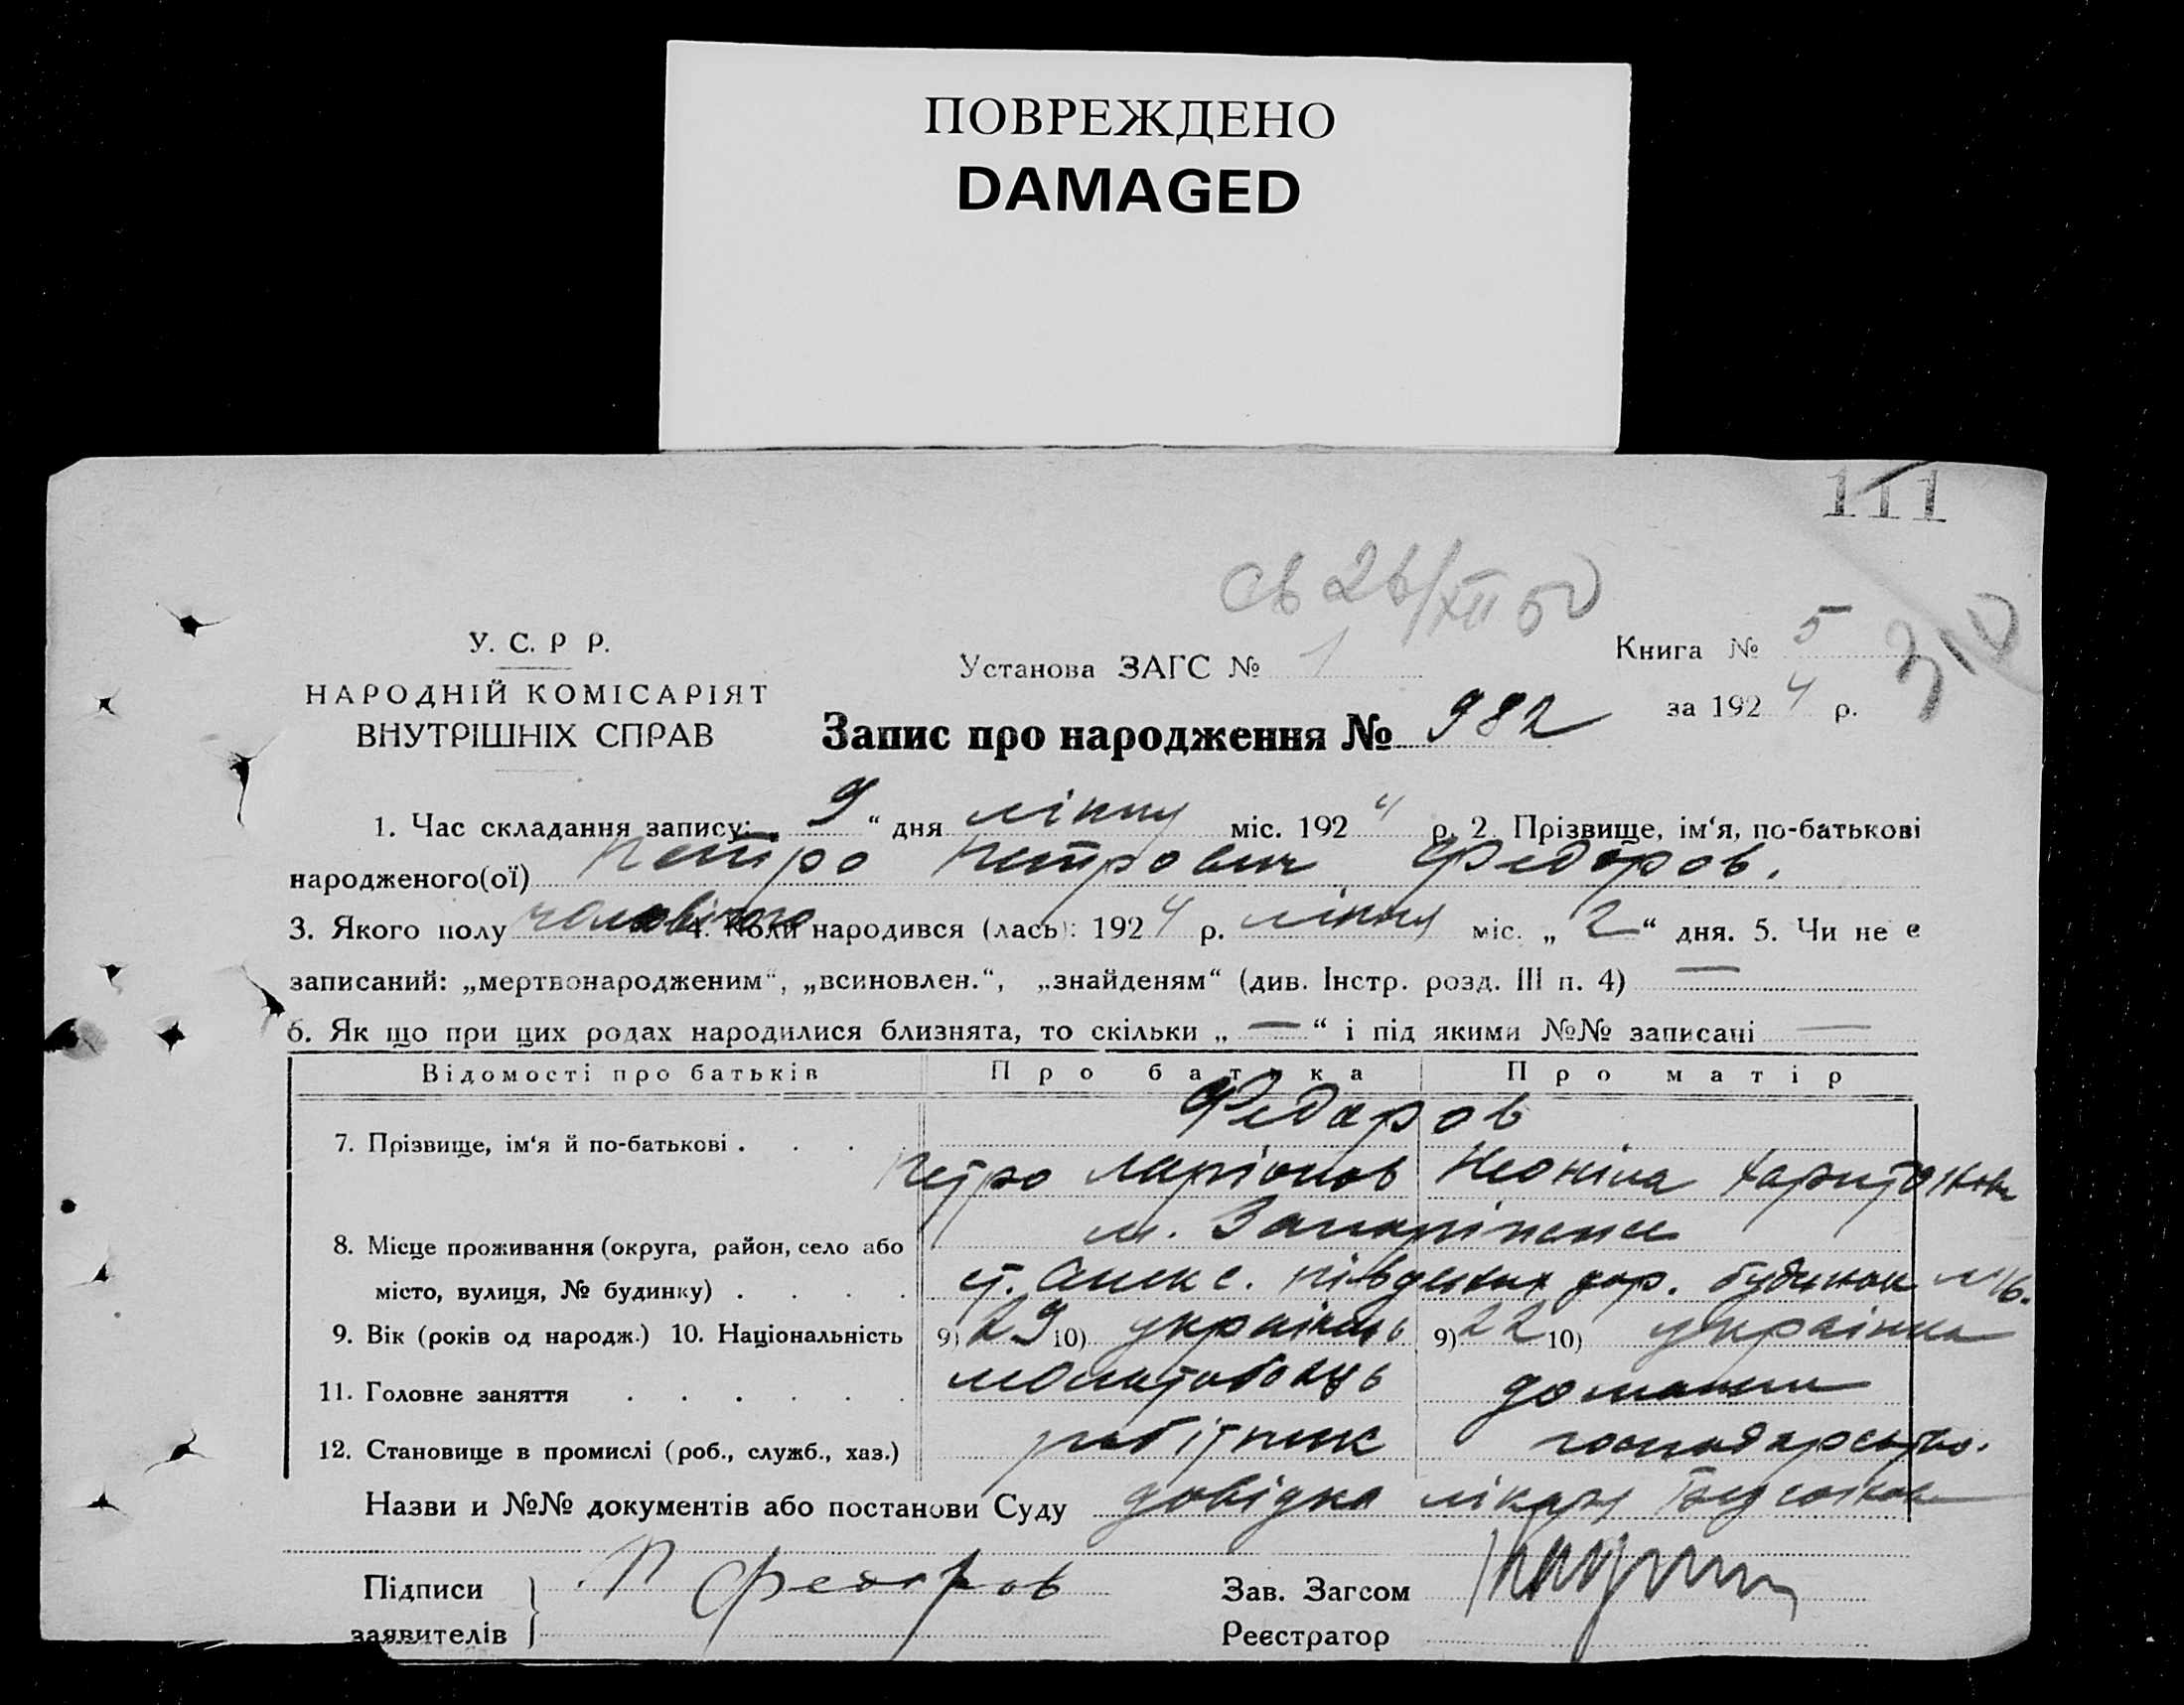 ПОВРЕЖДЕНО
DAMAGED
111
св 26/XII 50
310
У. С. Р Р.
НАРОДНІЙ КОМІСАРІЯТ
ВНУТРІШНІХ СПРАВ
Установа ЗАГС № 1
Книга № 5
за 1924 р.
Запис про народження № 982
1. Час складання запису: „ 9 “ дня липня міс. 1924 р. 2. Прізвище, ім‘я, по-батькові
народженого(ої) Петро Петрович Федоров.
3. Якого полу чоловічого 4. Коли народився (лась): 1924 р. липня міс. „ 2 “ дня. 5. Чи не є
записаний: „мертвонародженим“, „всиновлен.“, „знайденям“ (див. Інстр. розд. III п. 4) —
6. Як що при цих родах народилися близнята, то скільки „ — “ і під якими №№ записані —
Відомості про батьків Про батька Про матір
Федоров
7. Прізвище, ім‘я й по-батькові . . .
Петро Ларіонов Неоніла Харитонов
8. Місце проживання (округа, район, село або
місто, вулиця, № будинку) . . . .
м. Запоріжжє
ст. Алекс. південних дор. будинок №16.
9. Вік (років од народж.) 10. Національність 9) 29 10) українець 9) 22 10) українка
11. Головне заняття . . . . . . молотобоєць домашнє
12. Становище в промислі (роб., служб., хаз.) робітник господарство.
Назви и №№ документів або постанови Суду довідка лікаря
Підписи
заявителів
П Федоров
Зав. Загсом
Реєстратор